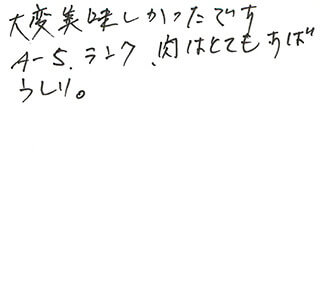 大変美味しかったです
A-5.ランク、肉はとてもすば
らしい。